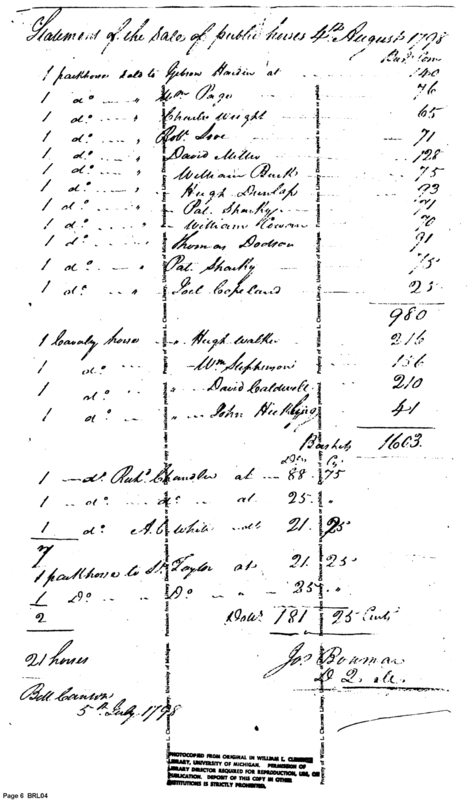 Statement of the Sale of public horses 4th August 1798
Bus. Corn
1 packhorse sold to Gibson Hardin at 140
1 do " Wm Page 76
1 do " Charles Wright 65
1 do " Robt. Love 71
1 do " David Miller 128
1 do " William Buck 75
1 do " Hugh Dunlap 93
1 do Pat. Sharky
1 do " William Cowan 70
1 do " Thomas Dodson 91
1 do " Pat Sharky 75
1 do " Joel Copeland 25
980
1 Cavalry horses " Hugh Walker 216
1 do Wm Stephenson 156
1 do " David Caldwell 210
1 do " John Hickling 41
Bushels 1603
Drs Cs
1 do Richd. Chandler at 88 75
1 do do at 25 "
1 do A. C. White do 21 25
7
1 packhorse to St. Taylor at 21 25
1 Do " Do " 25 "
2 Dolls. 181 25 Cents
21 horses
Jos Bowmar
D 2
5th July 1798
Property of William L. Clements Library, University of Michigan.
PHOTOCOPIED FROM ORIGINAL IN WILLIAM L. CLEMENTS
LIBRARY, UNIVERSITY OF MICHIGAN. PERMISSION OF
LIBRARY DIRECTOR REQUIRED FOR REPRODUCTION, USE, OR
PUBLICATION. DEPOSIT OF THIS COPY IN OTHER
INSTITUTIONS IS STRICTLY PROHIBITED.
Page 6 BRL04